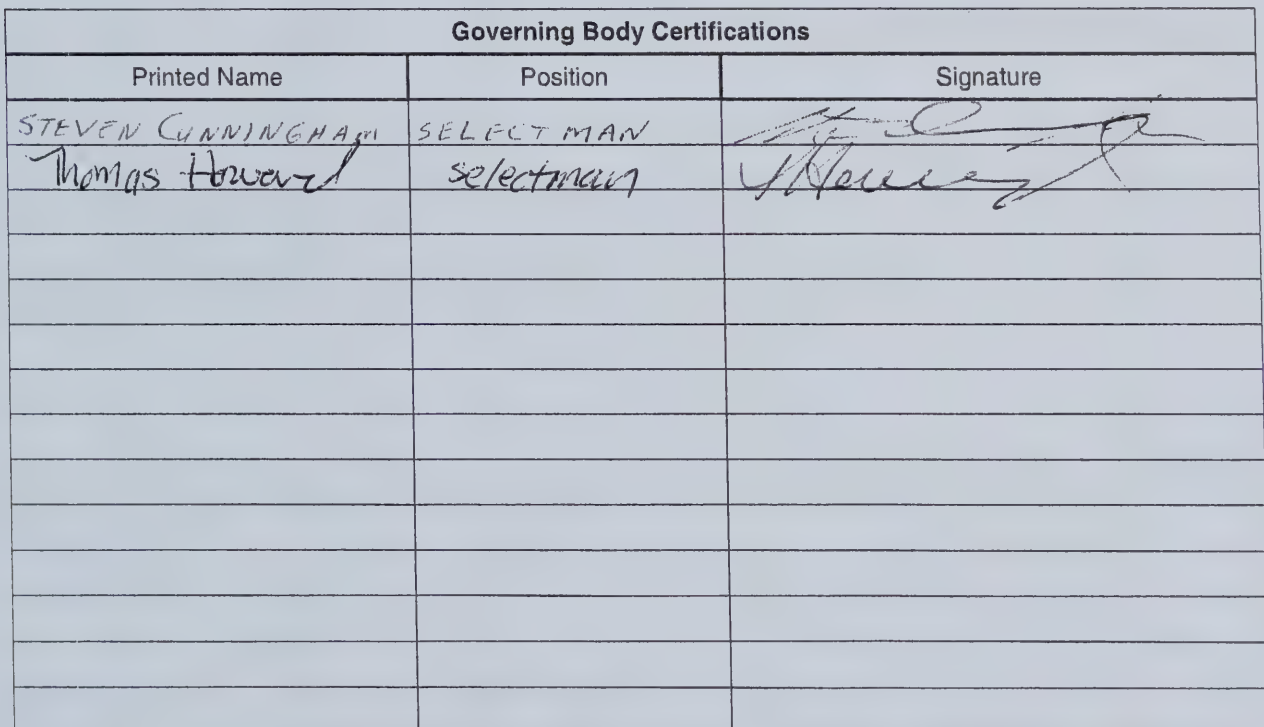 Governing Body Certifications
Printed Name Position Signature
STEVEN CUNNINGHAM SELECTMAN
Thomas Howard selectman